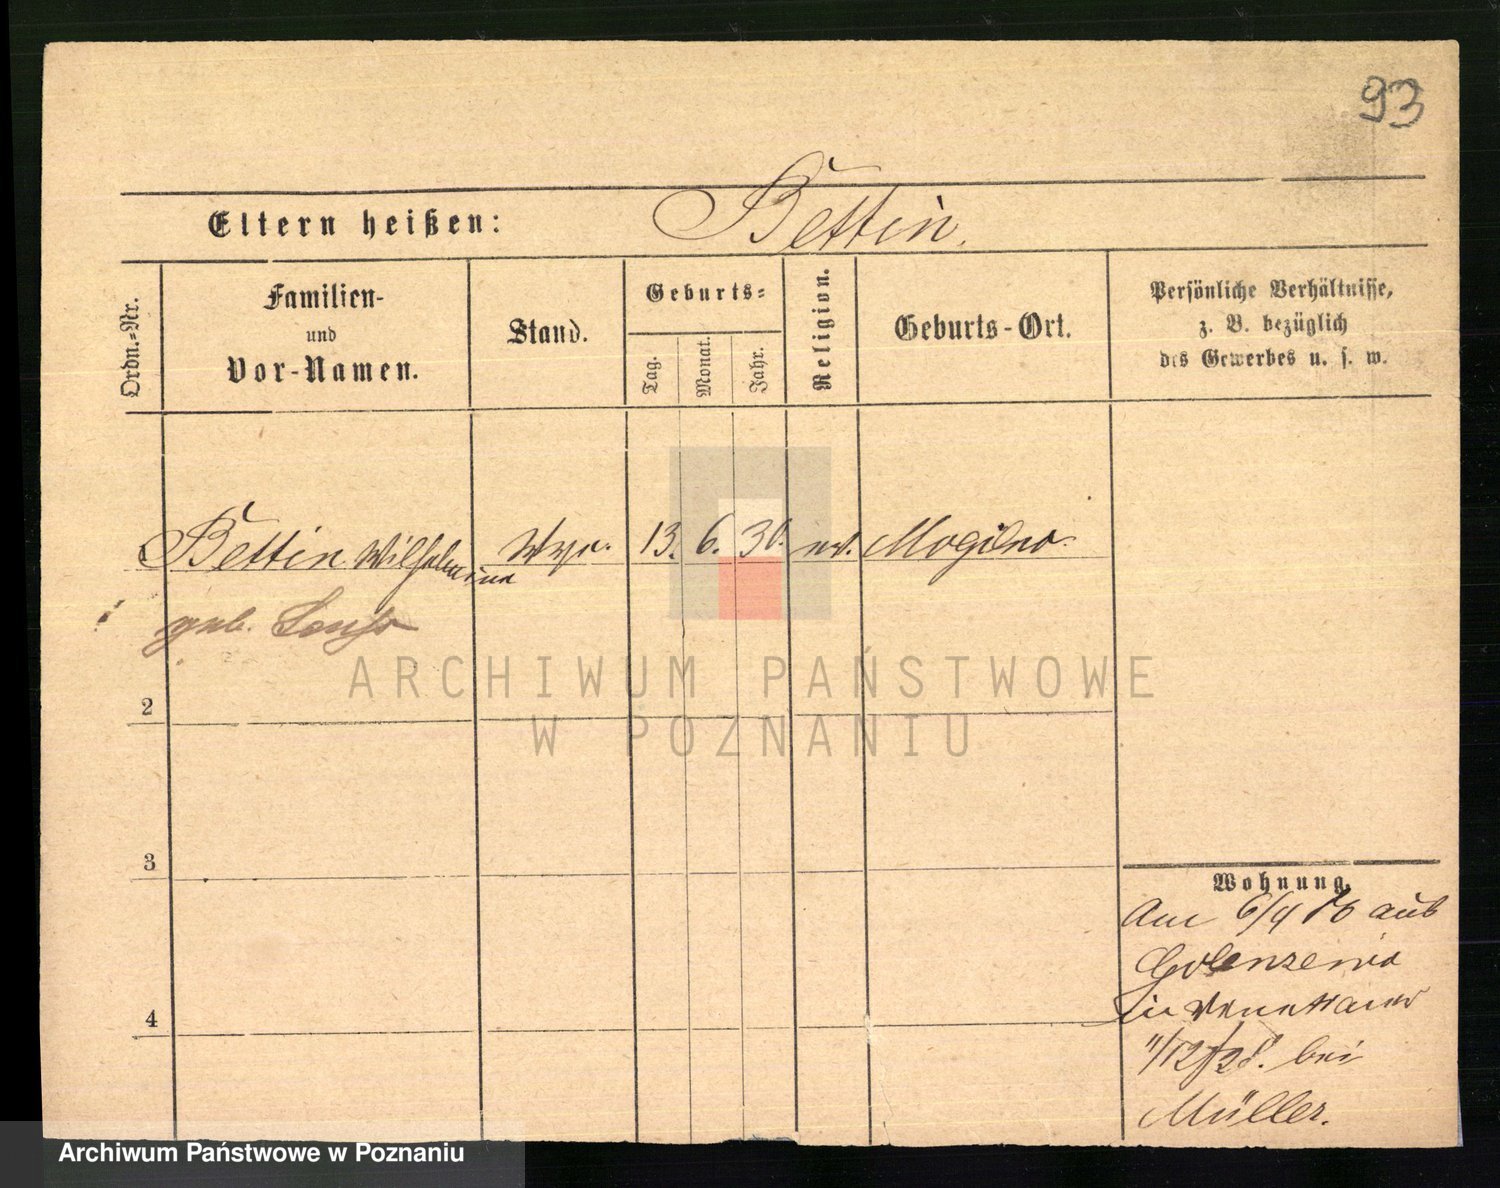 93
Eltern heißen: Bettin.
Ordn.-Nr.
Familien-
und
Vor-Namen.
Stand.
Geburts-
Tag.
Monat.
Jahr.
Religion.
Geburts-Ort.
Persönliche Verhältnisse,
z. B. bezüglich
des Gewerbes u. s. w.
Bettin Wilhelmina Wwe. 13. 6. 30. ev. Mogilno.
geb.
2
3
4
Wohnung.
Am 6/4 aus
in
11/12 bei
Müller.
ARCHIWUM PAŃSTWOWE
W POZNANIU
Archiwum Państwowe w Poznaniu